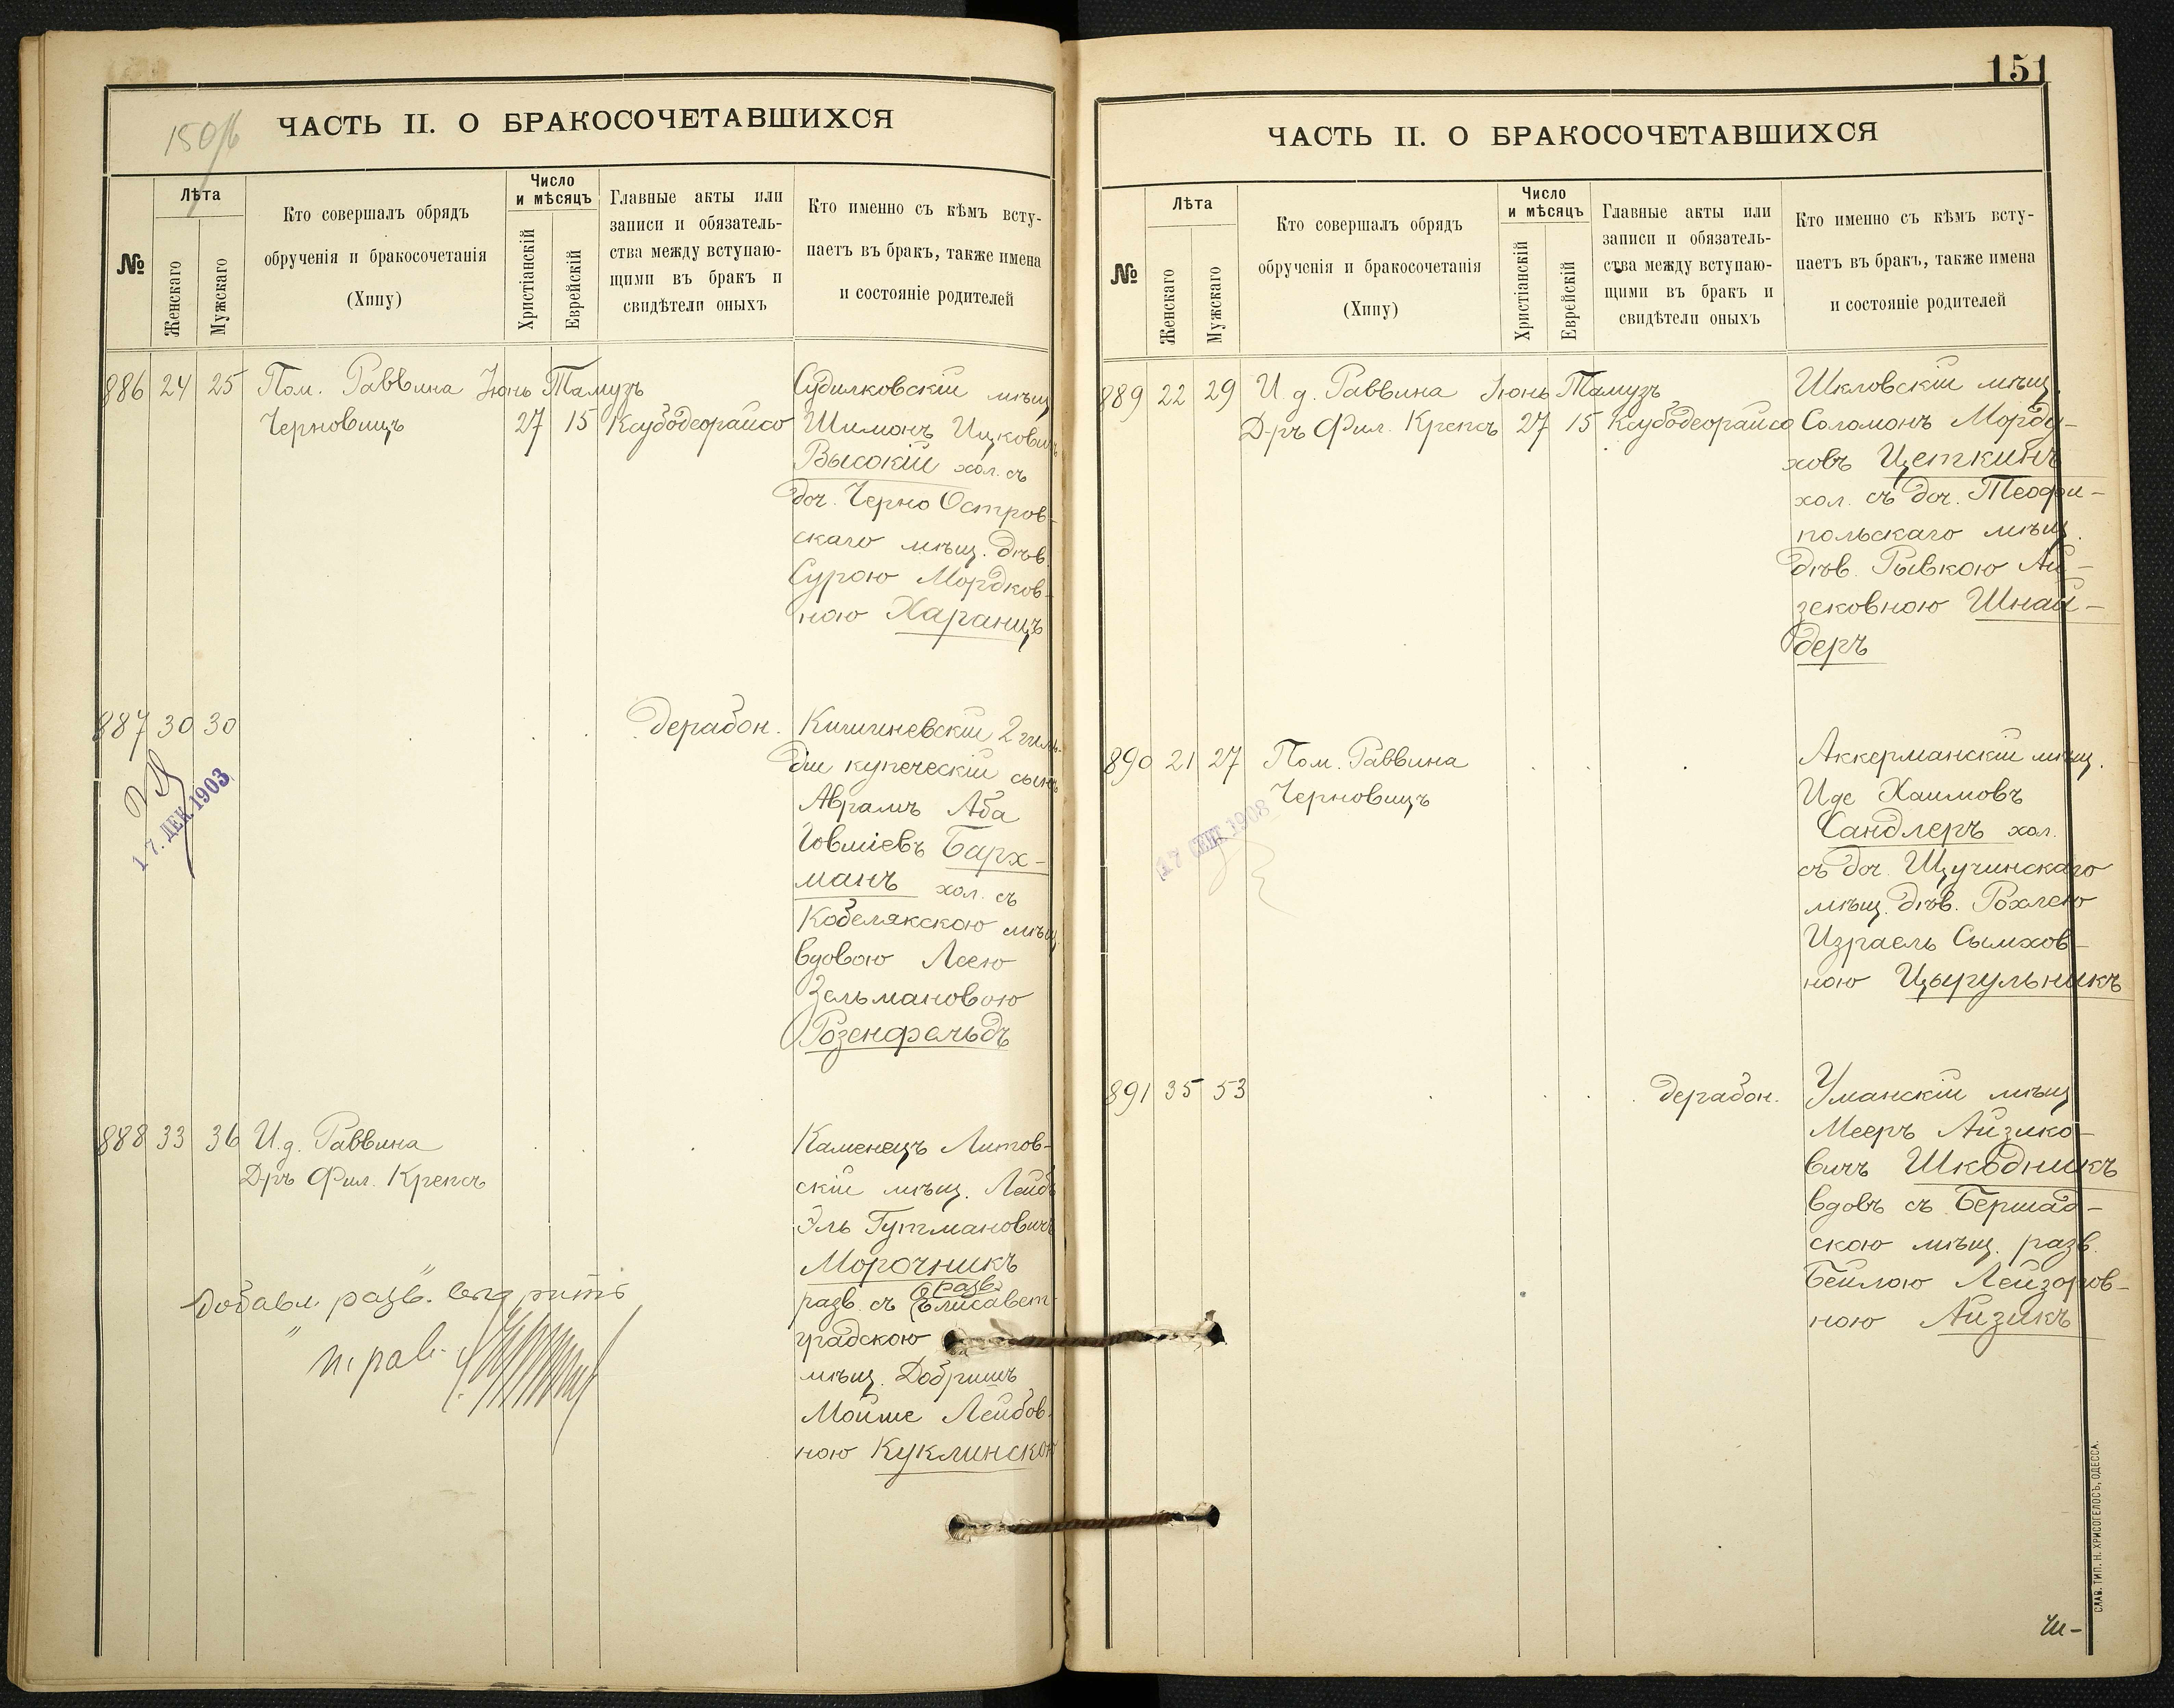 150/б
ЧАСТЬ II. О БРАКОСОЧЕТАВШИХСЯ
№
Лѣта
Женскаго
Мужскаго
Кто совершалъ обрядъ
обрученія и бракосочетанія
(Хипу)
Число
и мѣсяцъ
Христіанскій
Еврейскій
Главные акты или
записи и обязатель-
ства между вступаю-
щими въ бракъ и
свидѣтели оныхъ
Кто именно съ кѣмъ всту-
паетъ въ бракъ, также имена
и состояніе родителей
886 24 25 Пом. Раввина Іюнь Тамузъ
Черновицъ 27 15 Ксубодеорайсо
Судилковскій мѣщ.
Шимонъ Ицковичъ
Высокій хол. съ
доч. Черно Остров-
скаго мѣщ. дѣв.
Сурою Мордков-
ною Харанцъ
887 30 30
дерабон.
17. ДЕК. 1903
Кишиневскій 2 гиль-
діи купеческій сынъ
Аврамъ Аба
Іовліевъ Барх-
манъ хол. съ
Кобелякскою мѣщ.
вдовою Леею
Зельмановою
Розенфельдъ
888 33 36 И. д. Раввина
Д-ръ Фил. Крепсъ
Каменецъ Литов-
скій мѣщ. Лейбъ
Эль Гутмановичъ
Морочникъ
разв.
разв. съ Елисавет-
градскою
мѣщ. Добришъ
Мойше Лейбов-
ною Куклинскою
Добавл. „разв.“
151
ЧАСТЬ II. О БРАКОСОЧЕТАВШИХСЯ
№
Лѣта
Женскаго
Мужскаго
Кто совершалъ обрядъ
обрученія и бракосочетанія
(Хипу)
Число
и мѣсяцъ
Христіанскій
Еврейскій
Главные акты или
записи и обязатель-
ства между вступаю-
щими въ бракъ и
свидѣтели оныхъ
Кто именно съ кѣмъ всту-
паетъ въ бракъ, также имена
и состояніе родителей
889 22 29 И. д. Раввина Іюнь Тамузъ
Д-ръ Фил. Крепсъ 27 15 Ксубодеорайсо
Шкловскій мѣщ.
Соломонъ Морду-
ховъ Цеткинъ
хол. съ доч. Теофи-
польскаго мѣщ.
дѣв. Рывкою Ай-
зековною Шнай-
деръ
890 21 27 Пом. Раввина
Черновицъ
17 СЕН 1908
Аккерманскій мѣщ.
Иде Хаимовъ
Сандлеръ хол.
съ доч. Щучинскаго
мѣщ. дѣв. Рохлею
Израель Сымхов-
ною Цырульникъ
891 35 53
дерабон.
Уманскій мѣщ
Мееръ Айзико-
вичъ Шкодникъ
вдовъ съ Бершад-
скою мѣщ. разв.
Бейлою Лейзоров-
ною Айзикъ
СЛАВ. ТИП. Н. ХРИСОГЕЛОСЪ, ОДЕССА.